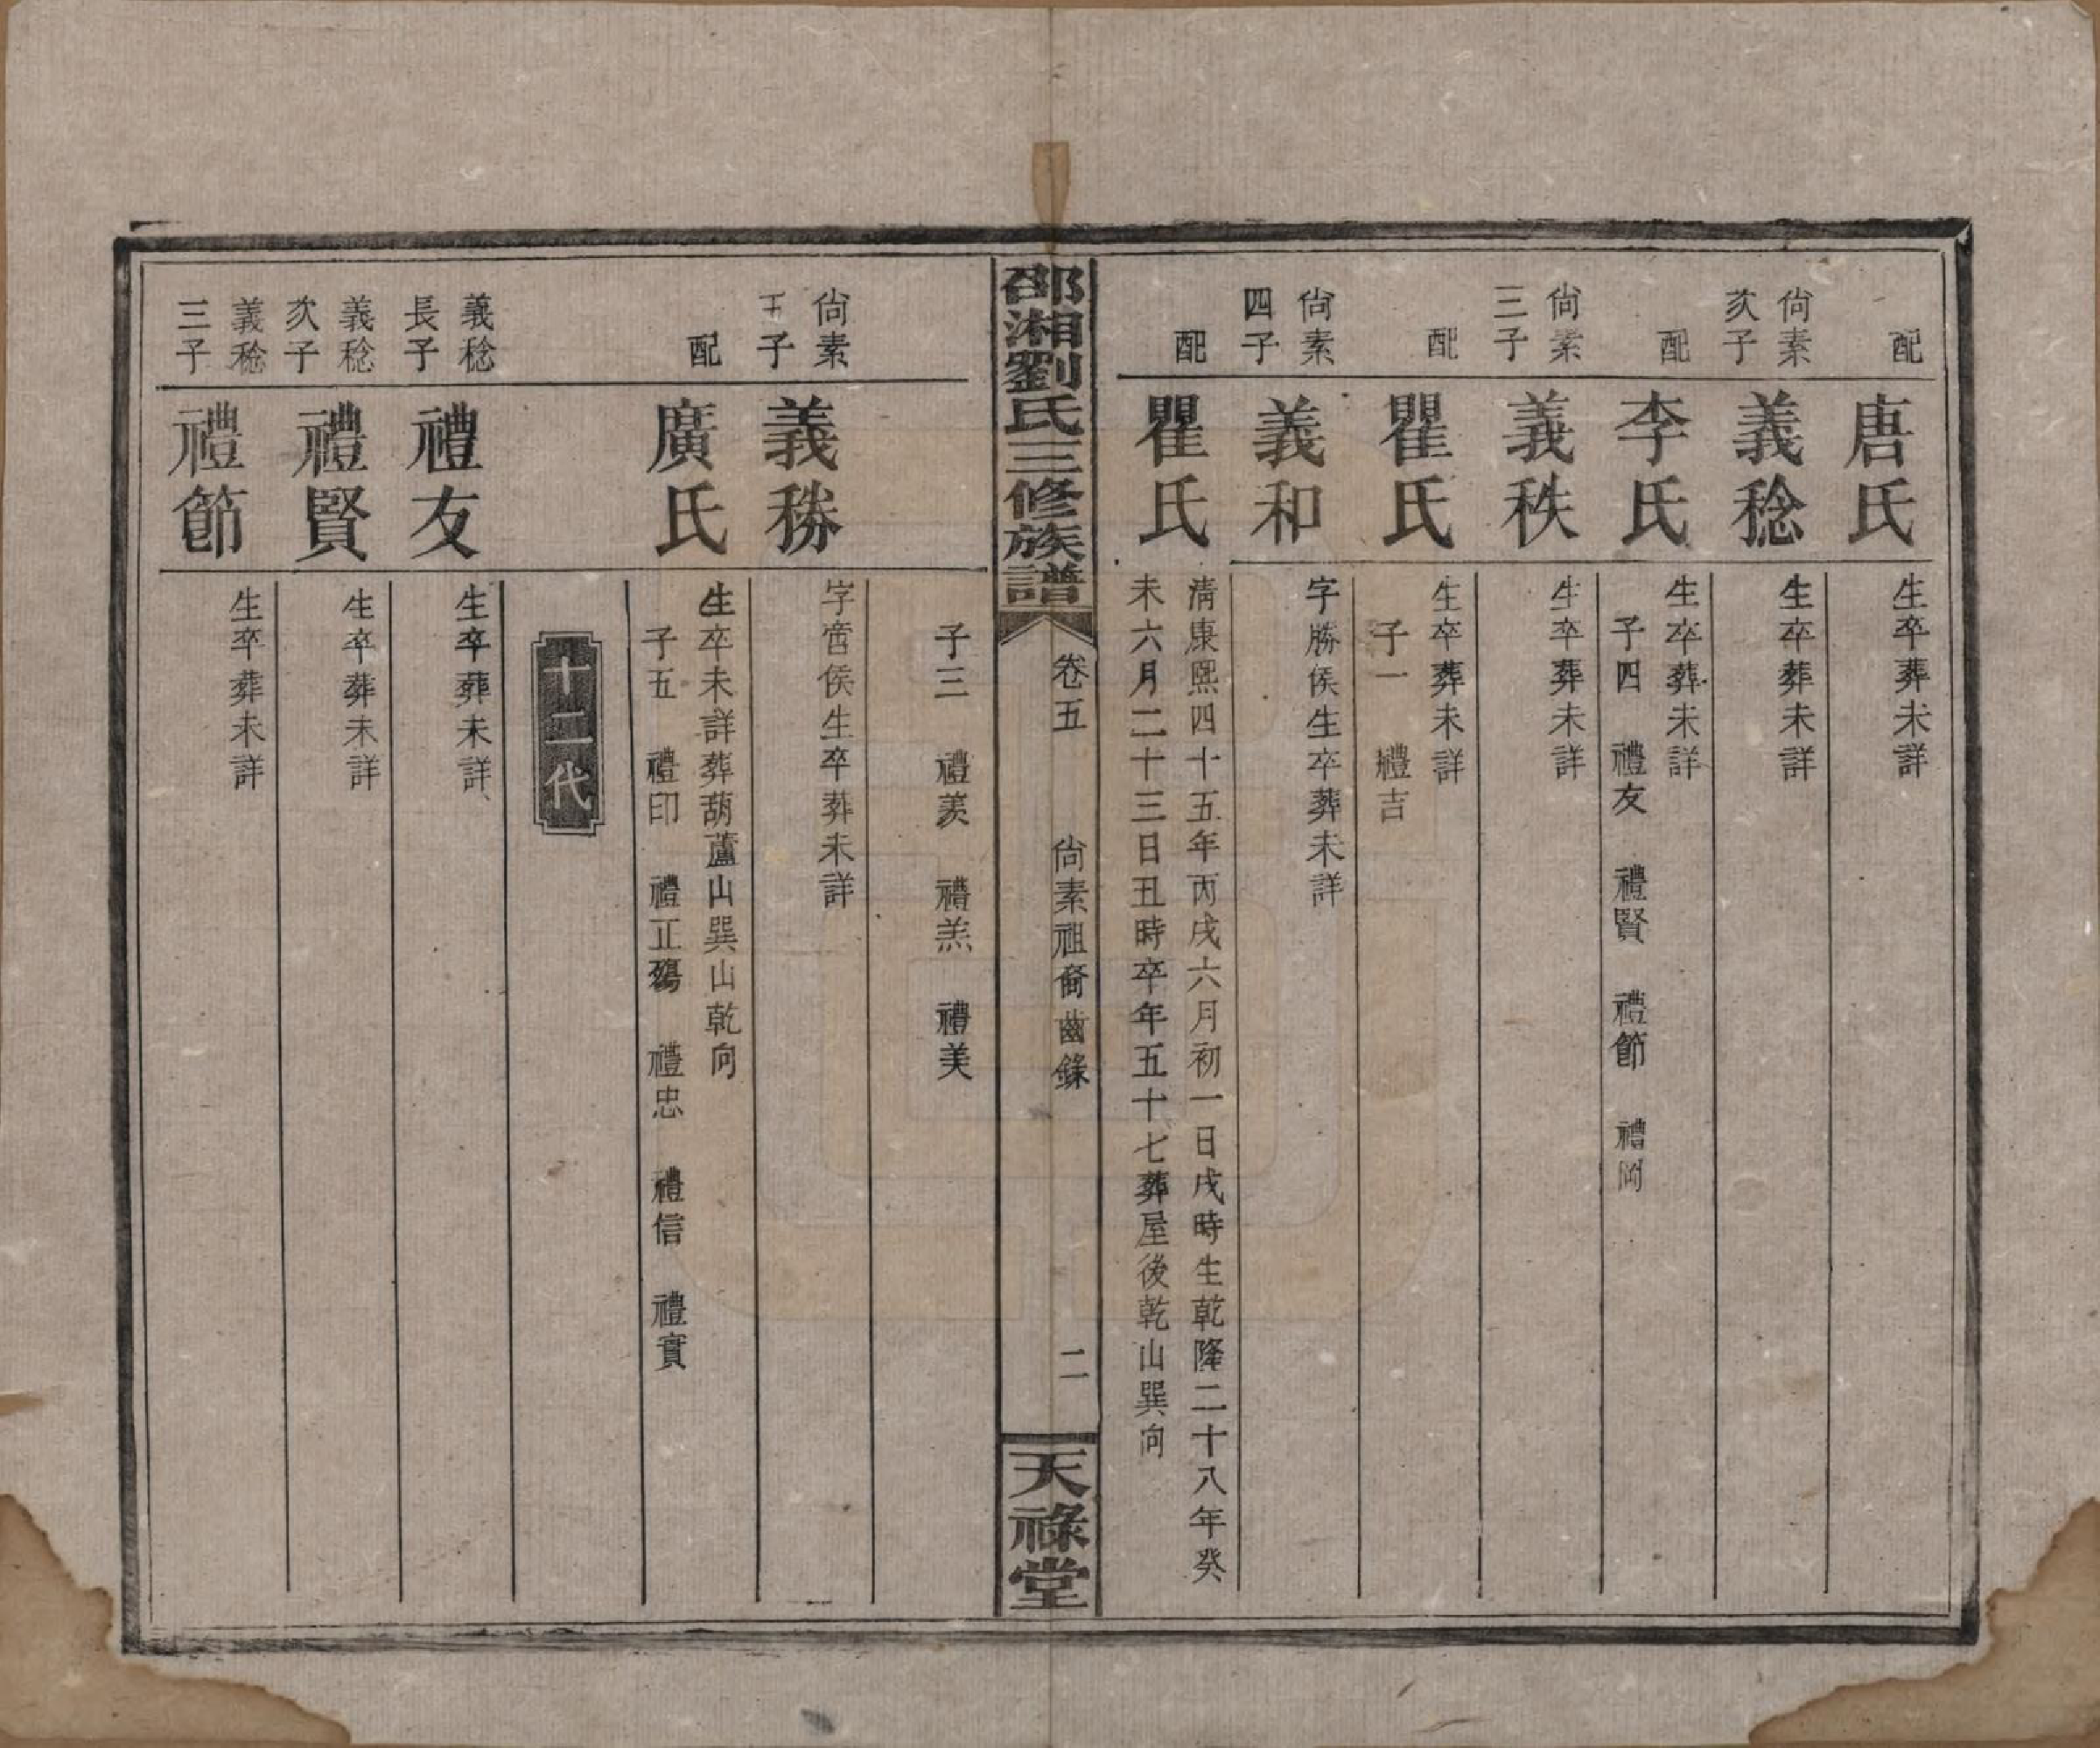 配
唐氏
生卒葬未詳
尙素
次子
義稔
生卒葬未詳
配
李氏
生卒葬未詳
子四 禮友 禮賢 禮節 禮岡
尙素
三子
義秩
生卒葬未詳
配
瞿氏
生卒葬未詳
子一 禮吉
尙素
四子
義和
字勝侯生卒葬未詳
配
瞿氏
清康熙四十五年丙戌六月初一日戌時生乾隆二十八年癸
未六月二十三日丑時卒年五十七葬屋後乾山巽向
邵湘劉氏三修族譜
卷五 尙素祖裔齒錄 二
天祿堂
子三 禮羨 禮羔 禮美
尙素
五子
義稌
字啻侯生卒葬未詳
配
廣氏
生卒未詳葬葫蘆山巽山乾向
子五 禮印 禮正殤 禮忠 禮信 禮實
十二代
義稔
長子
禮友
生卒葬未詳
義稔
次子
禮賢
生卒葬未詳
義稔
三子
禮節
生卒葬未詳